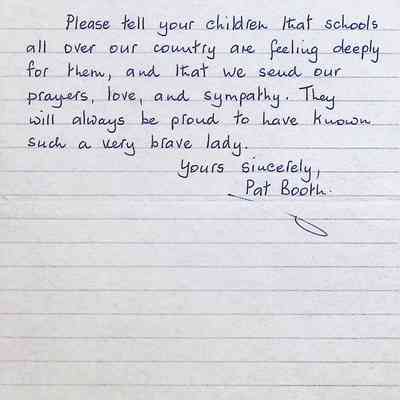 Please tell your children that schools
all over our country are feeling deeply
for them, and that we send our
prayers, love, and sympathy. They
will always be proud to have known
such a very brave lady.
Yours sincerely,
Pat Booth.